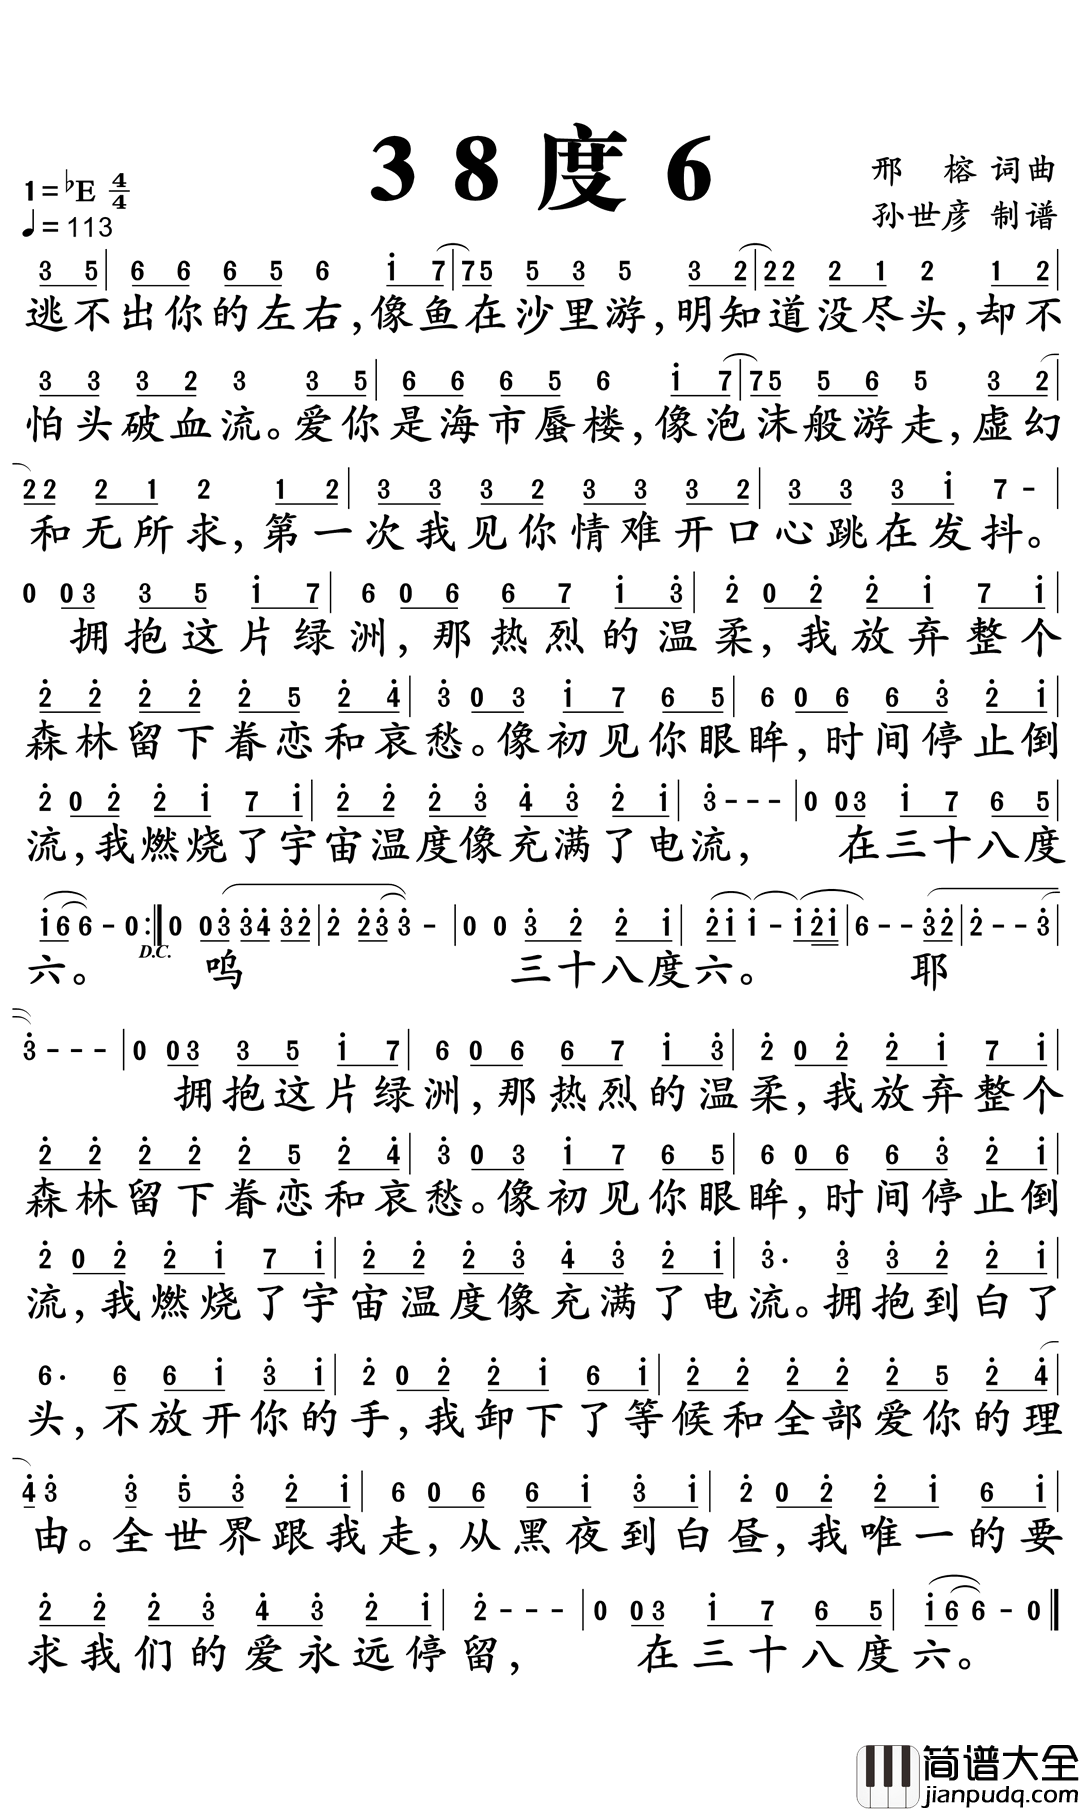 38度6
邢 榕 词曲
1=♭E 4/4
孙世彦 制谱
♩=113
3 5| 6 6 6 5 6 i 7|75 5 3 5 3 2|22 2 1 2 1 2|
逃不出你的左右,像鱼在沙里游,明知道没尽头,却不
3 3 3 2 3 3 5| 6 6 6 5 6 i 7|75 5 6 5 3 2|
怕头破血流。爱你是海市蜃楼,像泡沫般游走,虚幻
22 2 1 2 1 2| 3 3 3 2 3 3 3 2| 3 3 3 i 7 -|
和无所求,第一次我见你情难开口心跳在发抖。
0 03 3 5 i 7| 6 06 6 7 i 3̇| 2̇ 02̇ 2̇ i 7 i|
拥抱这片绿洲,那热烈的温柔,我放弃整个
2̇ 2̇ 2̇ 2̇ 2̇ 5 2̇ 4̇| 3̇ 03 i 7 6 5| 6 06 6 3̇ 2̇ i|
森林留下眷恋和哀愁。像初见你眼眸,时间停止倒
2̇ 02̇ 2̇ i 7 i| 2̇ 2̇ 2̇ 3̇ 4̇ 3̇ 2̇ i| 3̇---| 0 03 i 7 6 5|
流,我燃烧了宇宙温度像充满了电流, 在三十八度
i6 6-0:‖0 03̇ 3̇4̇ 3̇2̇|2̇ 2̇3̇ 3̇-|0 0 3̇ 2̇ 2̇ i|2̇i i-i2̇i|6--3̇2̇|2̇--3̇|
D.C.
六。 呜 三十八度六。 耶
3̇---|0 03 3 5 i 7| 6 06 6 7 i 3̇| 2̇ 02̇ 2̇ i 7 i|
拥抱这片绿洲,那热烈的温柔,我放弃整个
2̇ 2̇ 2̇ 2̇ 2̇ 5 2̇ 4̇| 3̇ 03 i 7 6 5| 6 06 6 3̇ 2̇ i|
森林留下眷恋和哀愁。像初见你眼眸,时间停止倒
2̇ 02̇ 2̇ i 7 i| 2̇ 2̇ 2̇ 3̇ 4̇ 3̇ 2̇ i| 3̇· 3̇ 3̇ 2̇ 2̇ i|
流,我燃烧了宇宙温度像充满了电流。拥抱到白了
6· 6 6 i 3̇ i| 2̇ 02̇ 2̇ i 6 i| 2̇ 2̇ 2̇ 2̇ 2̇ 5 2̇ 4̇|
头,不放开你的手,我卸下了等候和全部爱你的理
4̇3̇ 3̇ 5̇ 3̇ 2̇ i| 6 06 6 i 3̇ i| 2̇ 02̇ 2̇ i 6 i|
由。全世界跟我走,从黑夜到白昼,我唯一的要
2̇ 2̇ 2̇ 3̇ 4̇ 3̇ 2̇ i| 2̇---|0 03 i 7 6 5| i6 6-0‖
求我们的爱永远停留, 在三十八度六。
简谱大全
jianpudq.com